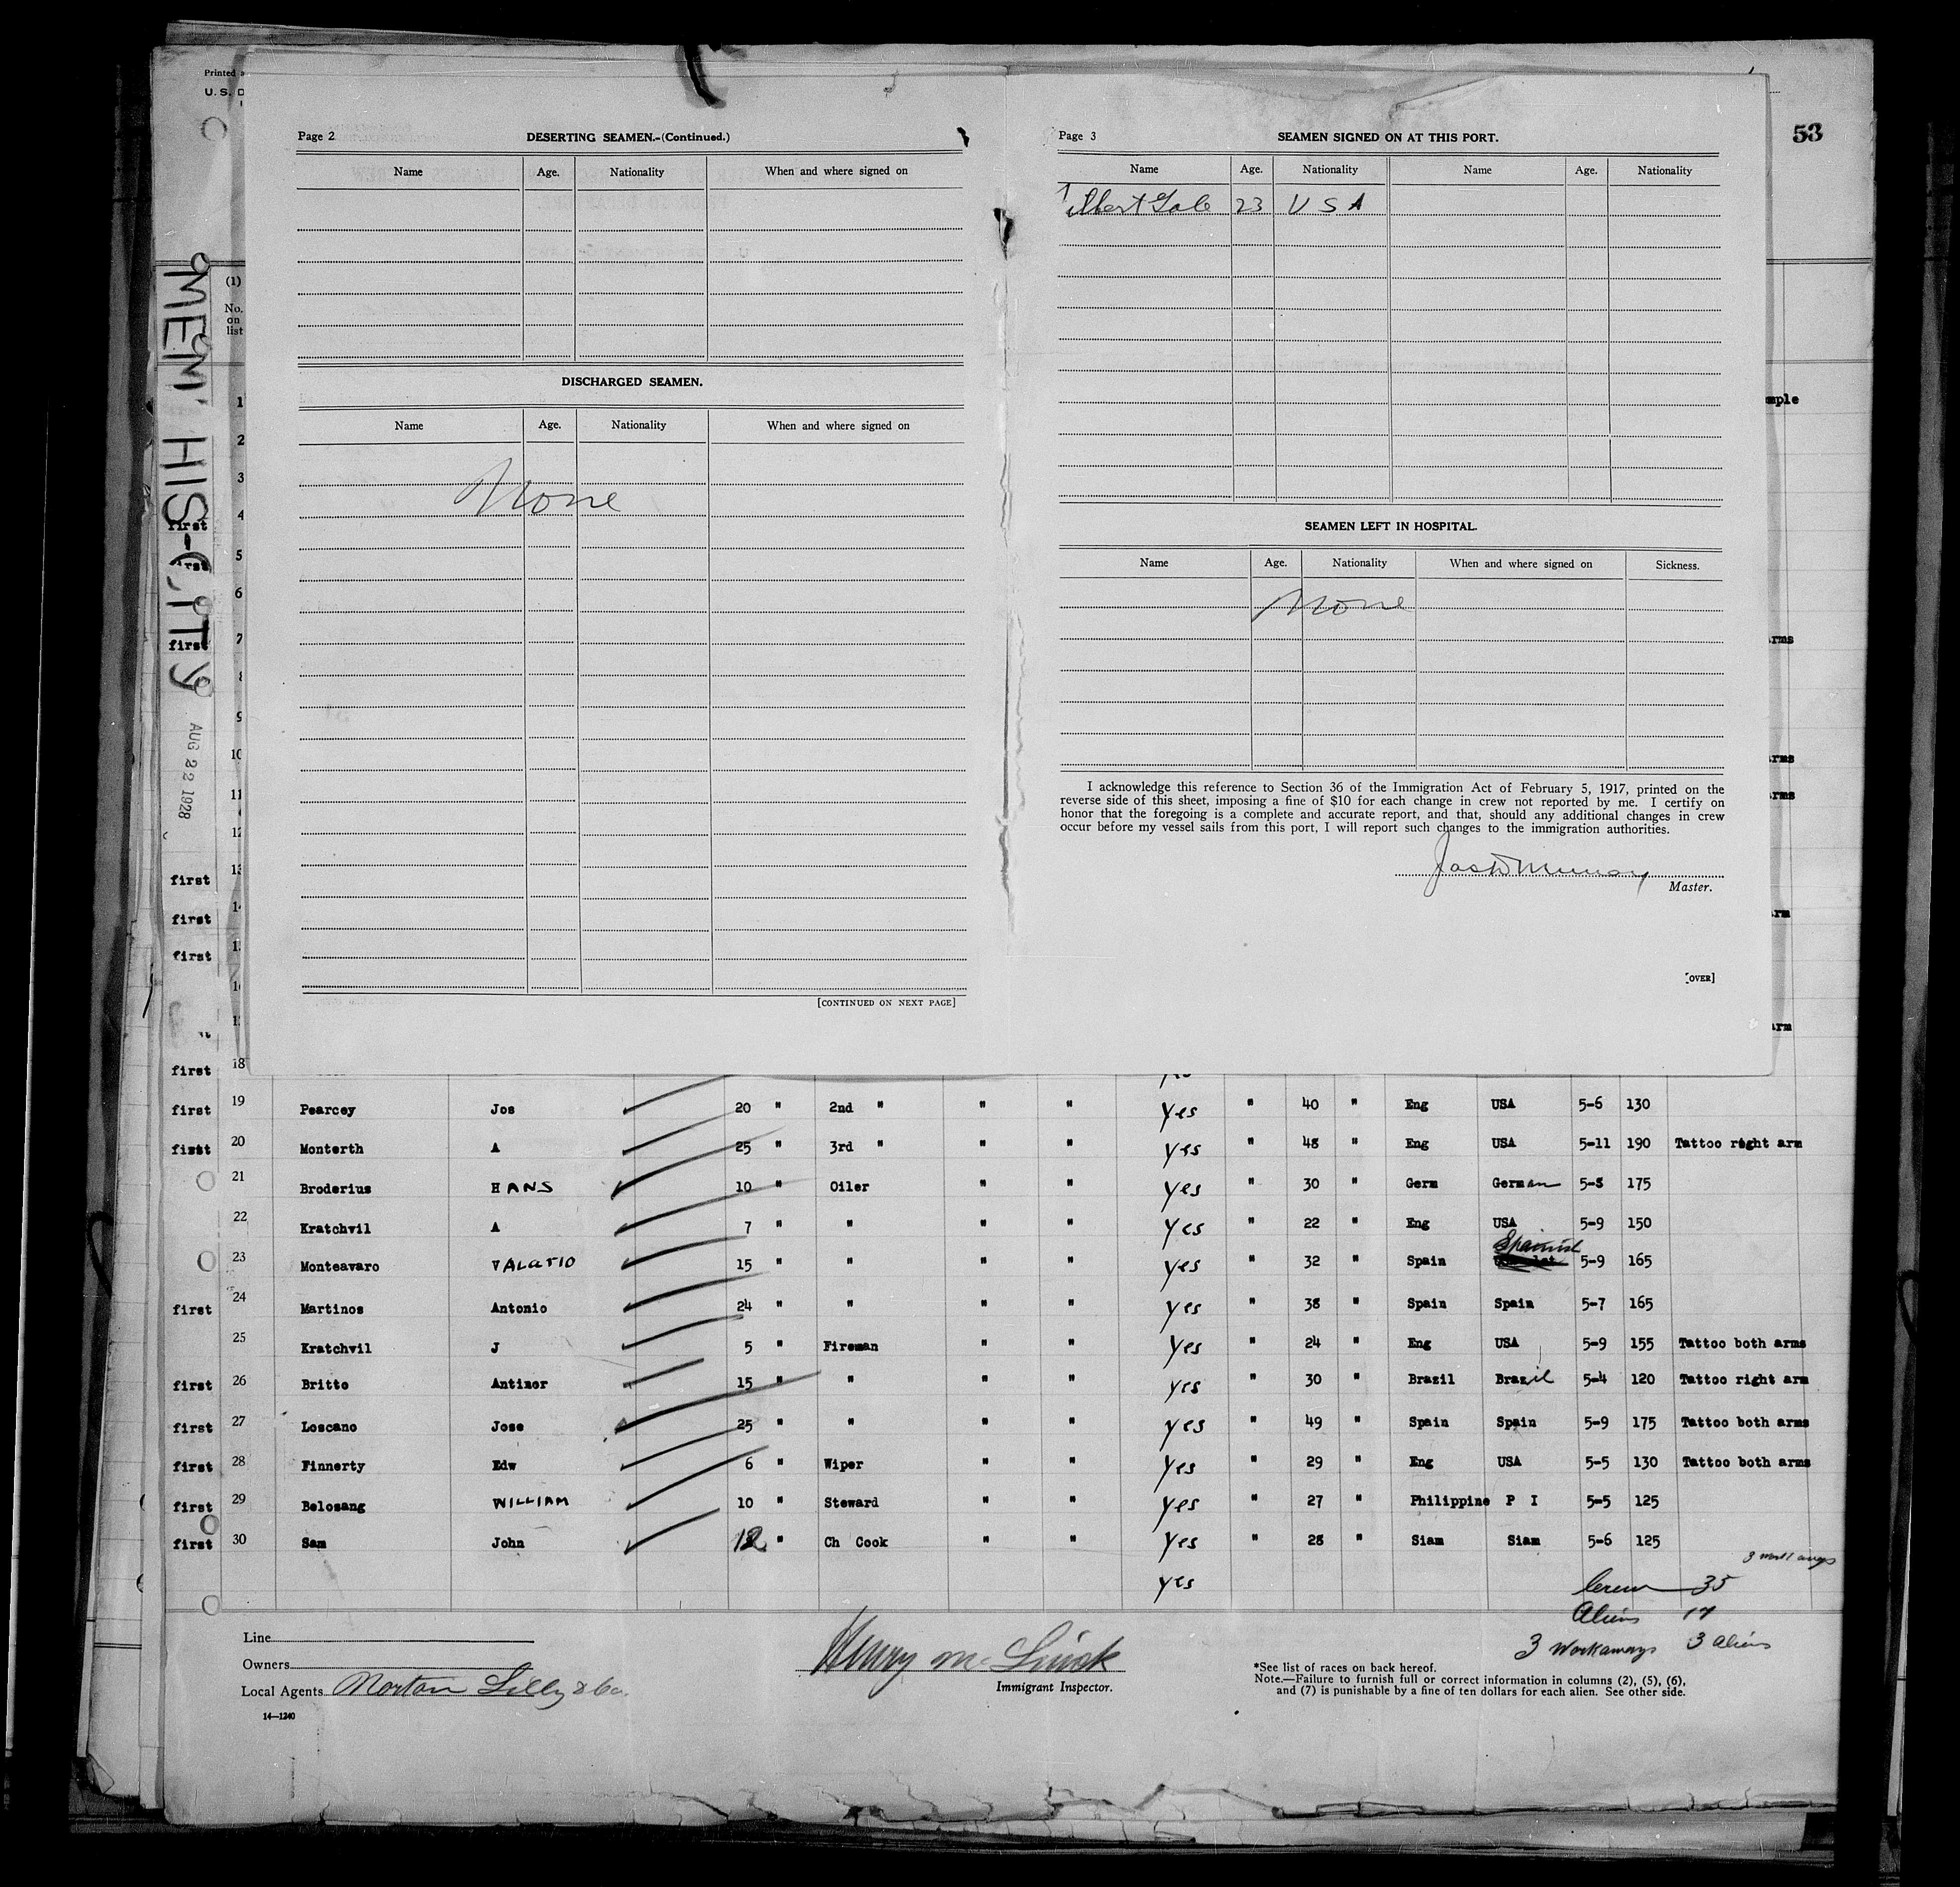 Printed
U. S. D
53
MEM' HIS-CITY
AUG 22 1928
Page 2
DESERTING SEAMEN.-(Continued.)
Name Age. Nationality When and where signed on
DISCHARGED SEAMEN.
Name Age. Nationality When and where signed on
None
[CONTINUED ON NEXT PAGE]
Page 3
SEAMEN SIGNED ON AT THIS PORT.
Name Age. Nationality Name Age. Nationality
Albert Gale 23 USA
SEAMEN LEFT IN HOSPITAL.
Name Age. Nationality When and where signed on Sickness.
None
I acknowledge this reference to Section 36 of the Immigration Act of February 5, 1917, printed on the
reverse side of this sheet, imposing a fine of $10 for each change in crew not reported by me. I certify on
honor that the foregoing is a complete and accurate report, and that, should any additional changes in crew
occur before my vessel sails from this port, I will report such changes to the immigration authorities.
Murray
Master.
[OVER]
(1)
No.
on
list
1
2
3
first 4
5
6
first 7
arms
9
10 arms
11 arms
12
first 13
first 14 arm
first 15
16
arm
first 18
first 19 Pearcey Jos 20 " 2nd " " " Yes " 40 " Eng USA 5-6 130
first 20 Monterth A 25 " 3rd " " Yes " 48 " Eng USA 5-11 190 Tattoo right arm
21 Broderius HANS 10 " Oiler " " Yes " 30 " Germ German 5-8 175
22 Kratchvil A 7 " " " " Yes " 22 " Eng USA 5-9 150
23 Monteavaro VALATIO 15 " " " " Yes " 32 " Spain Spanish 5-9 165
first 24 Martinos Antonio 24 " " " " Yes " 38 " Spain Spain 5-7 165
25 Kratchvil J 5 " Fireman " " Yes " 24 " Eng USA 5-9 155 Tattoo both arms
first 26 Britto Antinor 15 " " " " Yes " 30 " Brazil Brazil 5-4 120 Tattoo right arm
first 27 Loscano Jose 25 " " " " Yes " 49 " Spain Spain 5-9 175 Tattoo both arms
first 28 Finnerty Edw 6 " Wiper " " Yes " 29 " Eng USA 5-5 130 Tattoo both arms
first 29 Belosang WILLIAM 10 " Steward " " Yes " 27 " Philippine P I 5-5 125
first 30 Sam John 12 " Ch Cook " " Yes " 28 " Siam Siam 5-6 125
yes
3 workaways
Crew 35
Aliens 17
3 Workaways 3 aliens
Line
Owners
Local Agents Norton Lilly & Co.
14—1240
Henry
Immigrant Inspector.
*See list of races on back hereof.
Note.—Failure to furnish full or correct information in columns (2), (5), (6),
and (7) is punishable by a fine of ten dollars for each alien. See other side.